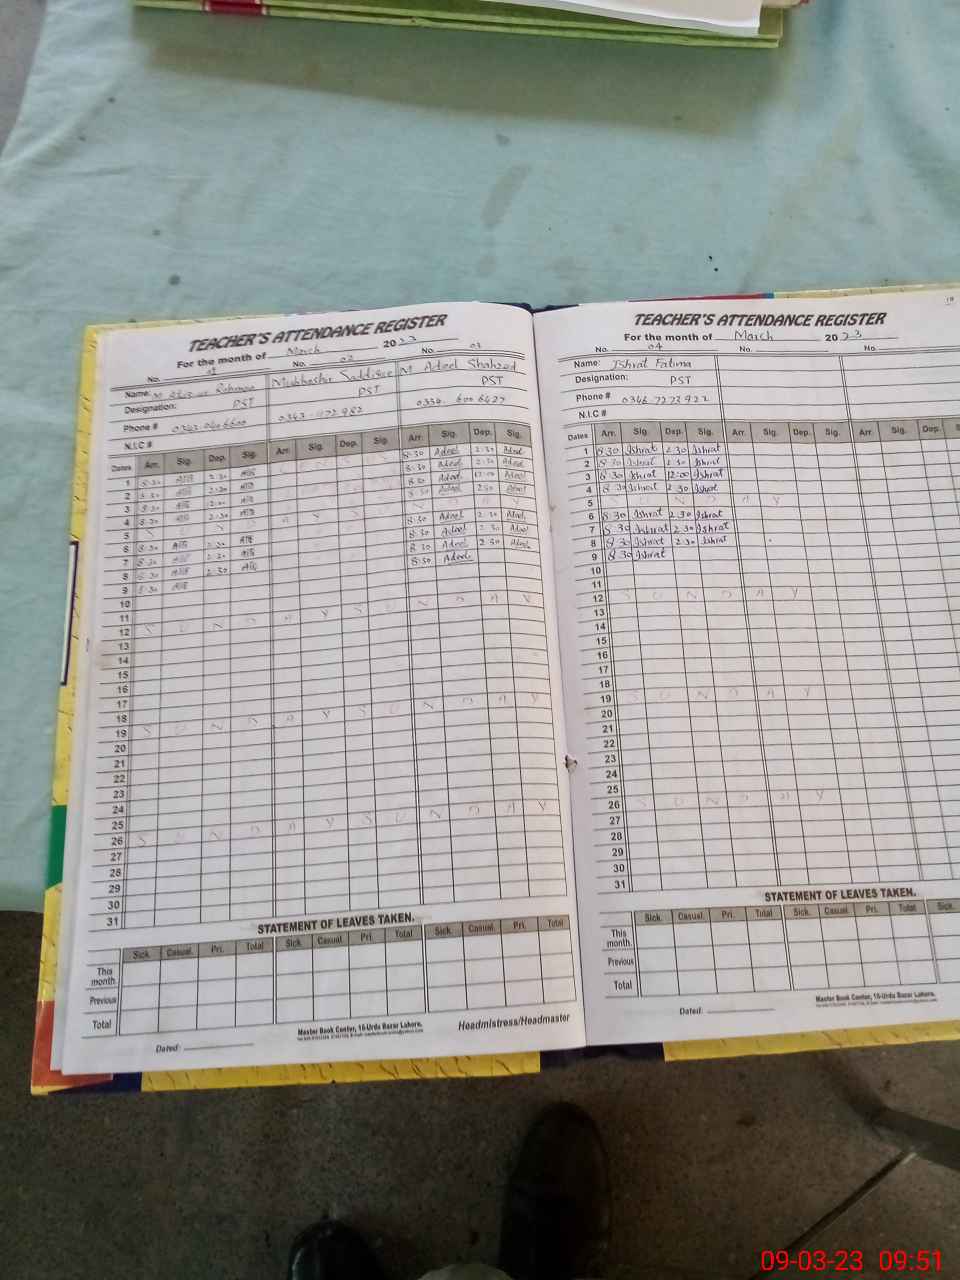 TEACHER'S ATTENDANCE REGISTER
For the month of March 2023
No. 01 No. 02 No. 03
Name: Rehman Mubbashir Saddique M Adeel Shahzad
Designation: PST PST PST
Phone #
N.I.C #
Dates Arr. Sig. Dep. Sig. Arr. Sig. Dep. Sig. Arr. Sig. Dep. Sig.
1 8:30 2:30 8:30 Adeel 2:30 Adeel
2 8:30 2:30 8:30 Adeel 2:30 Adeel
3 8:30 8:30 Adeel 12:00 Adeel
4 8:30 2:30 8:30 Adeel 2:30 Adeel
5 S U N D A Y
6 8:30 2:30 8:30 Adeel 2:30 Adeel
7 8:30 2:30 8:30 Adeel 2:30 Adeel
8 8:30 2:30 8:30 Adeel 2:30 Adeel
9 8:30 8:30 Adeel
10
11
12 S U N D A Y S U N D A Y
13
14
15
16
17
18
19 S U N D A Y S U N D A Y
20
21
22
23
24
25
26 S U N D A Y S U N D A Y
27
28
29
30
31
STATEMENT OF LEAVES TAKEN.
Sick. Casual. Pri. Total Sick. Casual. Pri. Total Sick. Casual. Pri. Total
This month.
Previous
Total
Master Book Center, 10-Urdu Bazar Lahore.
Headmistress/Headmaster
Dated:
TEACHER'S ATTENDANCE REGISTER
For the month of March 2023
No. 04 No. No.
Name: Ishrat Fatima
Designation: PST
Phone # 0346 7272922
N.I.C #
Dates Arr. Sig. Dep. Sig. Arr. Sig. Dep. Sig. Arr. Sig. Dep.
1 8:30 Ishrat 2:30 Ishrat
2 8:30 Ishrat 2:30 Ishrat
3 8:30 Ishrat 12:00 Ishrat
4 8:30 Ishrat 2:30 Ishrat
5 S U N D A Y
6 8:30 Ishrat 2:30 Ishrat
7 8:30 Ishrat 2:30 Ishrat
8 8:30 Ishrat 2:30 Ishrat
9 8:30 Ishrat
10
11
12 S U N D A Y
13
14
15
16
17
18
19 S U N D A Y
20
21
22
23
24
25
26 S U N D A Y
27
28
29
30
31
STATEMENT OF LEAVES TAKEN.
Sick. Casual. Pri. Total Sick. Casual. Pri. Total Sick.
This month.
Previous
Total
Master Book Center, 10-Urdu Bazar Lahore.
Dated:
09-03-23 09:51